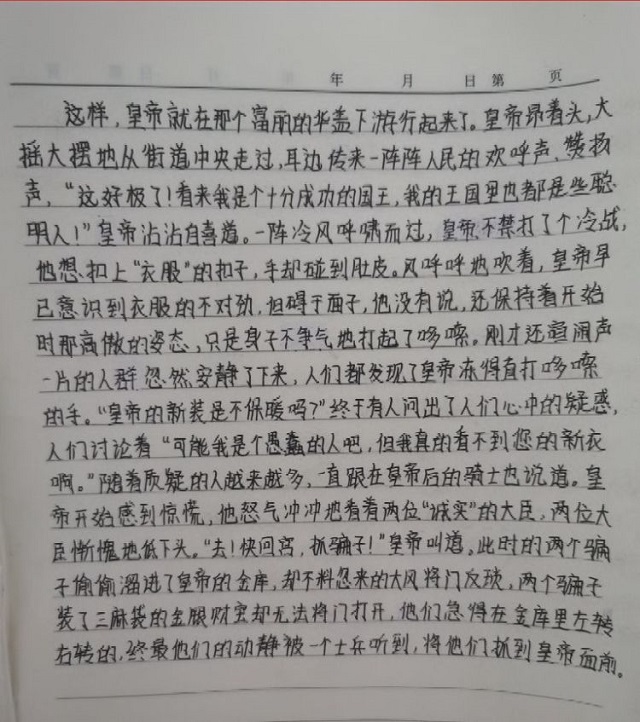 年 月 日 第 页
这样，皇帝就在那个富丽的华盖下游行起来了。皇帝昂着头，大
摇大摆地从街道中央走过，耳边传来一阵阵人民的欢呼声、赞扬
声，“这好极了！看来我是个十分成功的国王，我的王国里也都是些聪
明人！”皇帝沾沾自喜道。一阵冷风呼啸而过，皇帝不禁打了个冷战，
他想扣上“衣服”的扣子，手却碰到肚皮。风呼呼地吹着，皇帝早
已意识到衣服的不对劲，但碍于面子，他没有说，还保持着开始
时那高傲的姿态，只是身子不争气地打起了哆嗦。刚才还喧闹声
一片的人群忽然安静了下来，人们都发现了皇帝冻得直打哆嗦
的手。“皇帝的新装是不保暖吗？”终于有人问出了人们心中的疑惑，
人们讨论着“可能我是个愚蠢的人吧，但我真的看不到您的新衣
啊。”随着质疑的人越来越多，一直跟在皇帝后的骑士也说道。皇
帝开始感到惊慌，他怒气冲冲地看着两位“诚实”的大臣，两位大
臣惭愧地低下头。“去！快回宫，抓骗子！”皇帝叫道。此时的两个骗
子偷偷溜进了皇帝的金库，却不料忽来的大风将门反锁，两个骗子
装了三麻袋的金银财宝却无法将门打开，他们急得在金库里左转
右转的，终最他们的动静被一个士兵听到，将他们抓到皇帝面前。